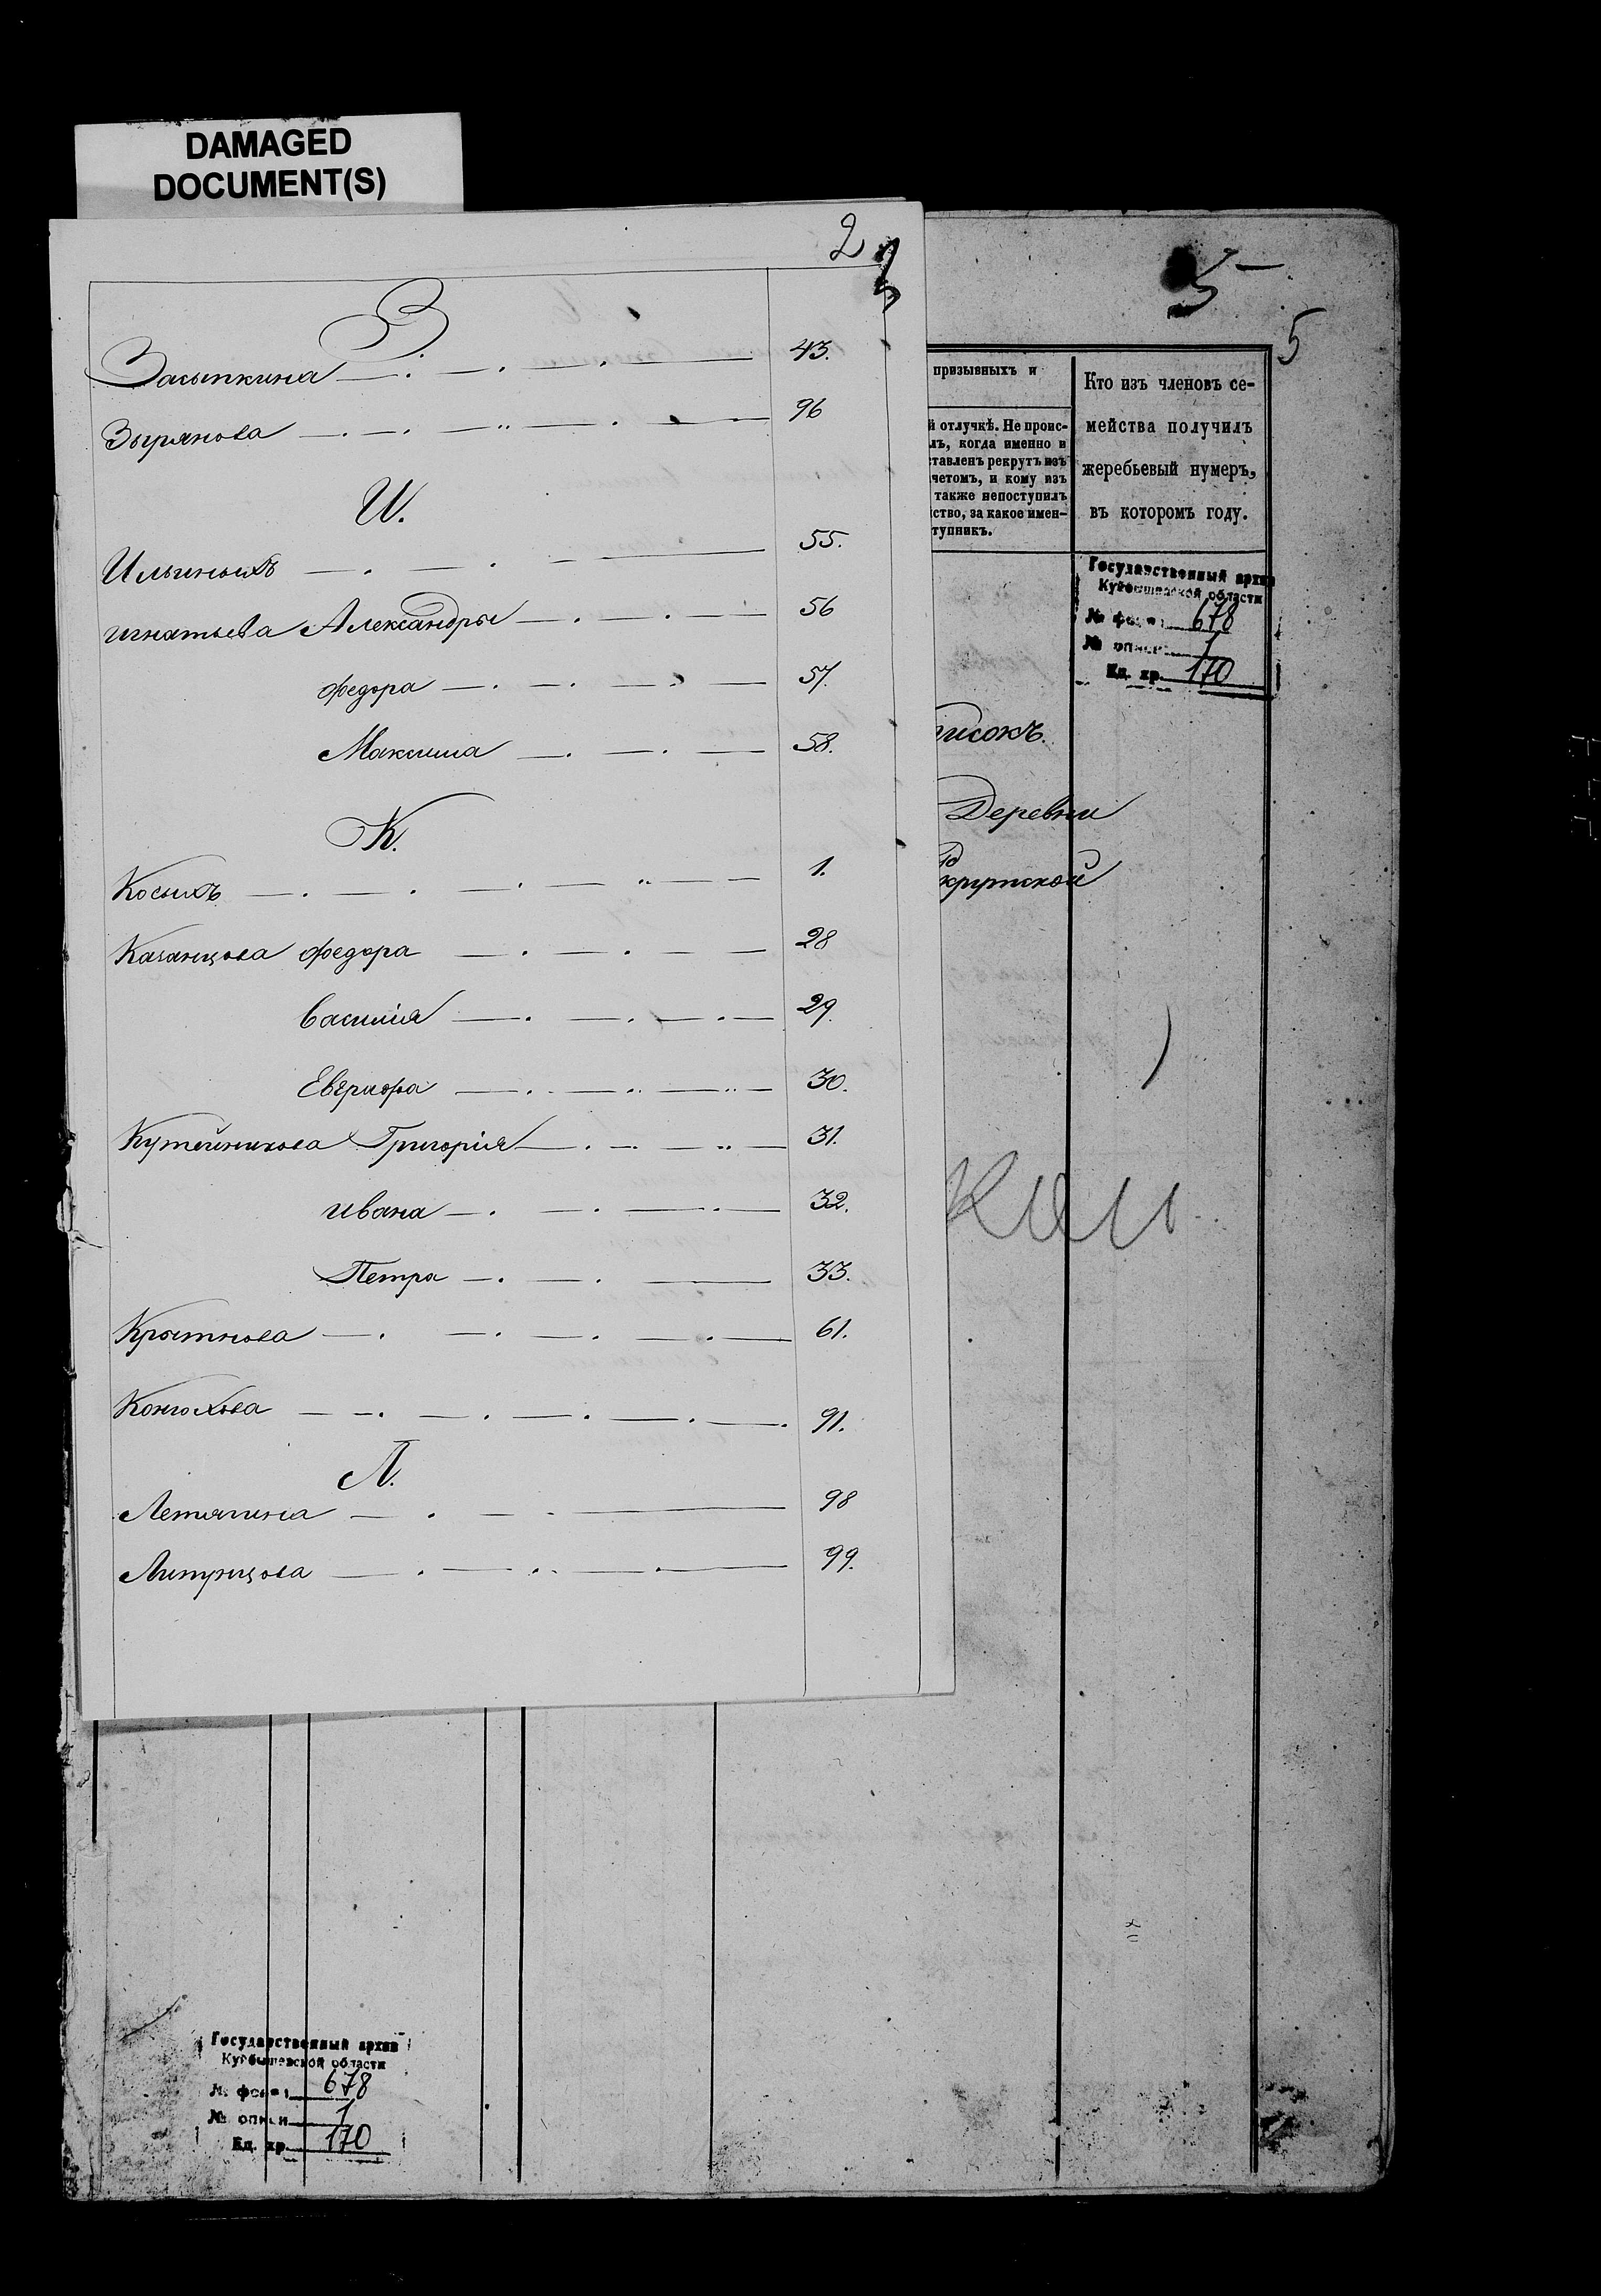 DAMAGED
DOCUMENT(S)
2
З
Засыпкина 43.
Зырянова 96
И.
Ильиныхъ 55.
Игнатьева Александры 56
Федора 57.
Максима 58.
К.
Косыхъ 1.
Казанцова Федора 28
Василія 29.
Евграфа 30.
Кутейникова Григорія 31.
Ивана 32.
Петра 33.
61.
Конюхова 91.
Л.
Летягина 98
99.
5
5
призывныхъ и
й отлучкѣ. Не проис-
лъ, когда именно и
ставленъ рекрутъ изъ
четомъ, и кому изъ
также непоступилъ
ство, за какое имен-
тупникъ.
Кто изъ членовъ се-
мейства получилъ
жеребьевый нумеръ,
въ которомъ году.
Государственный архив
Куйбышевской области
№ фонда 678
№ описи 1
Ед. хр. 170
писокъ.
Деревни
крутской
Государственный архив
Куйбышевской области
№ фонда 678
№ описи 1
Ед. хр. 170